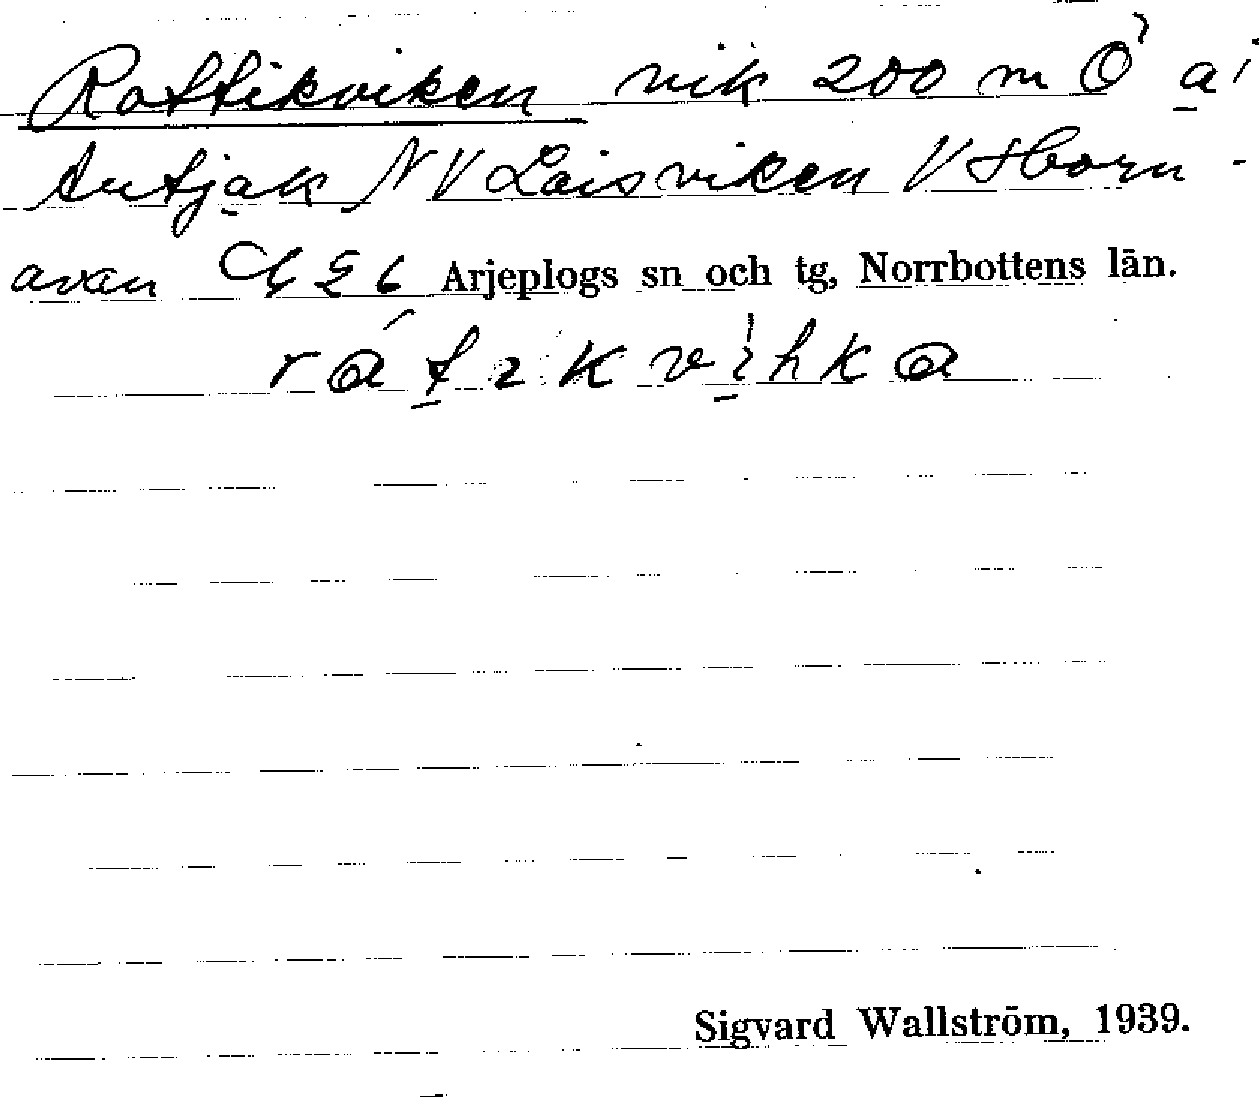 Rattikviken vik 200 m Ö
Autjak NV Laisviken V Horn-
avan Arjeplogs sn och tg, Norrbottens län.
Sigvard Wallström, 1939.